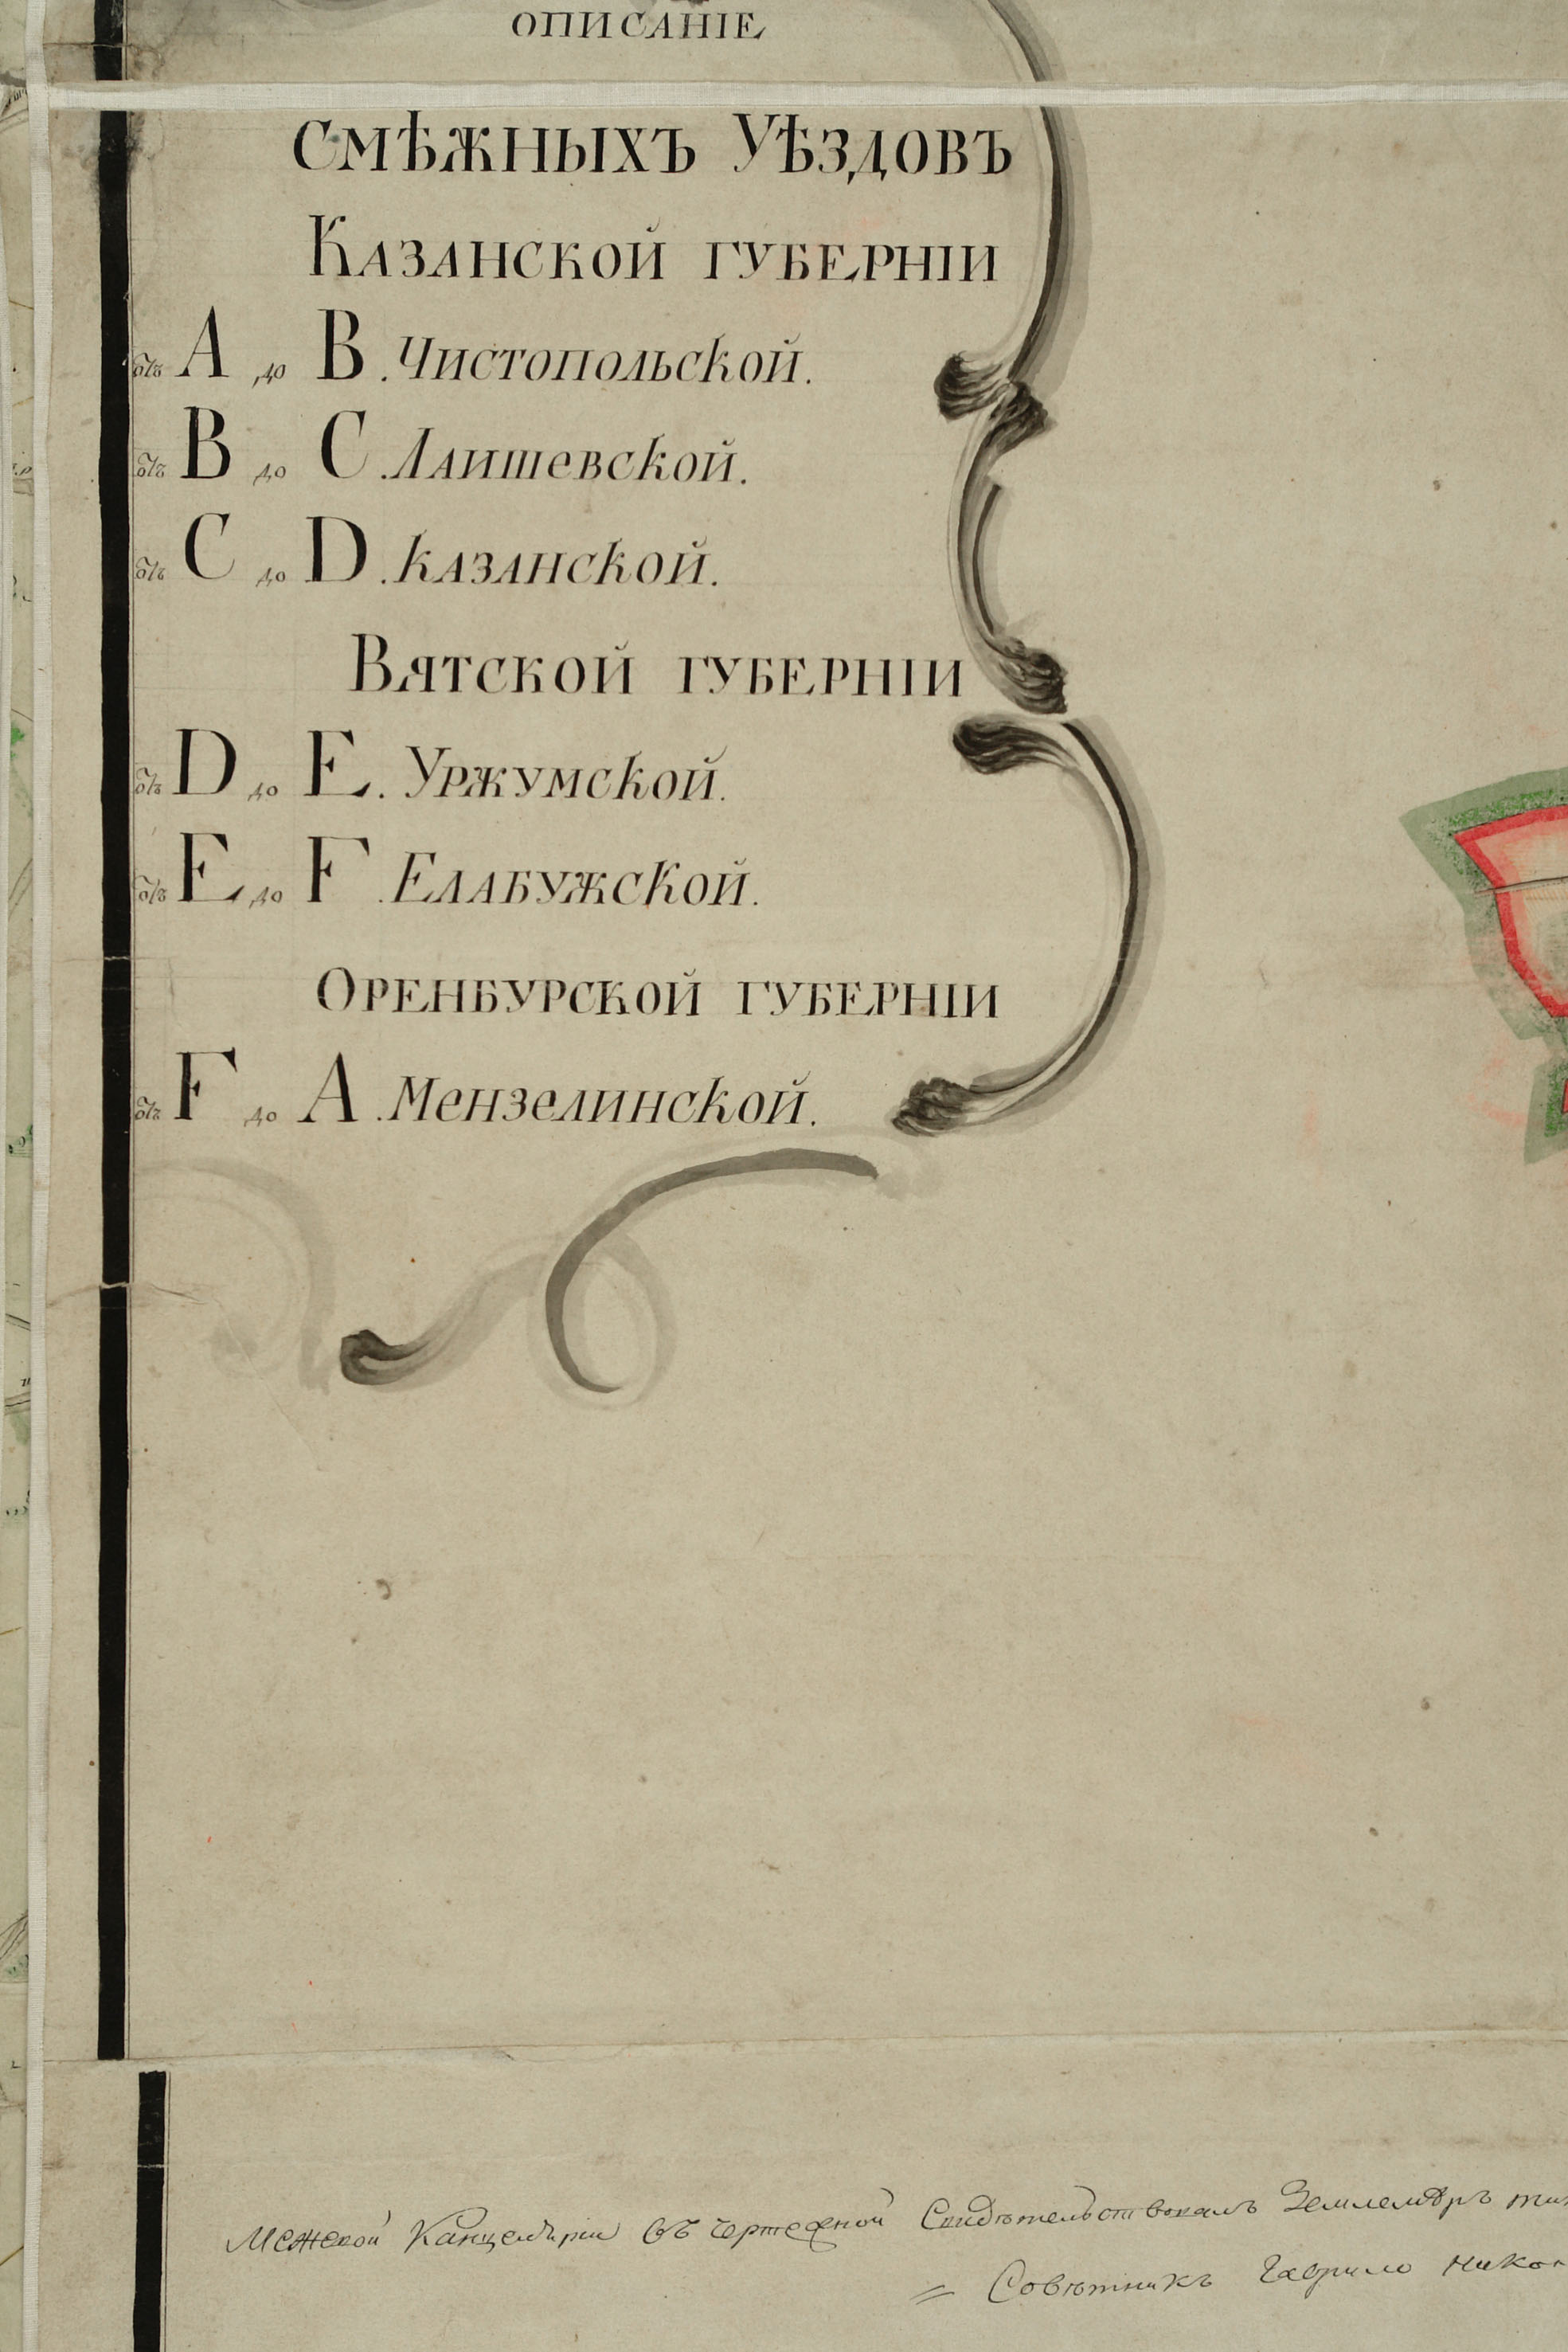 ОПИСАНІЕ
СМѢЖНЫХЪ УѢЗДОВЪ
КАЗАНСКОЙ ГУБЕРНІИ
отъ А до В. Чистопольской.
отъ В до С. Лаишевской.
отъ С до D. Казанской.
ВЯТСКОЙ ГУБЕРНІИ
отъ D до E. Уржумской.
отъ E до F. Елабужской.
ОРЕНБУРСКОЙ ГУБЕРНІИ
отъ F до А. Мензелинской.
Межевой Канцеляріи въ чертежной Свидѣтельствовалъ Землемѣръ
= Совѣтникъ Гаврило